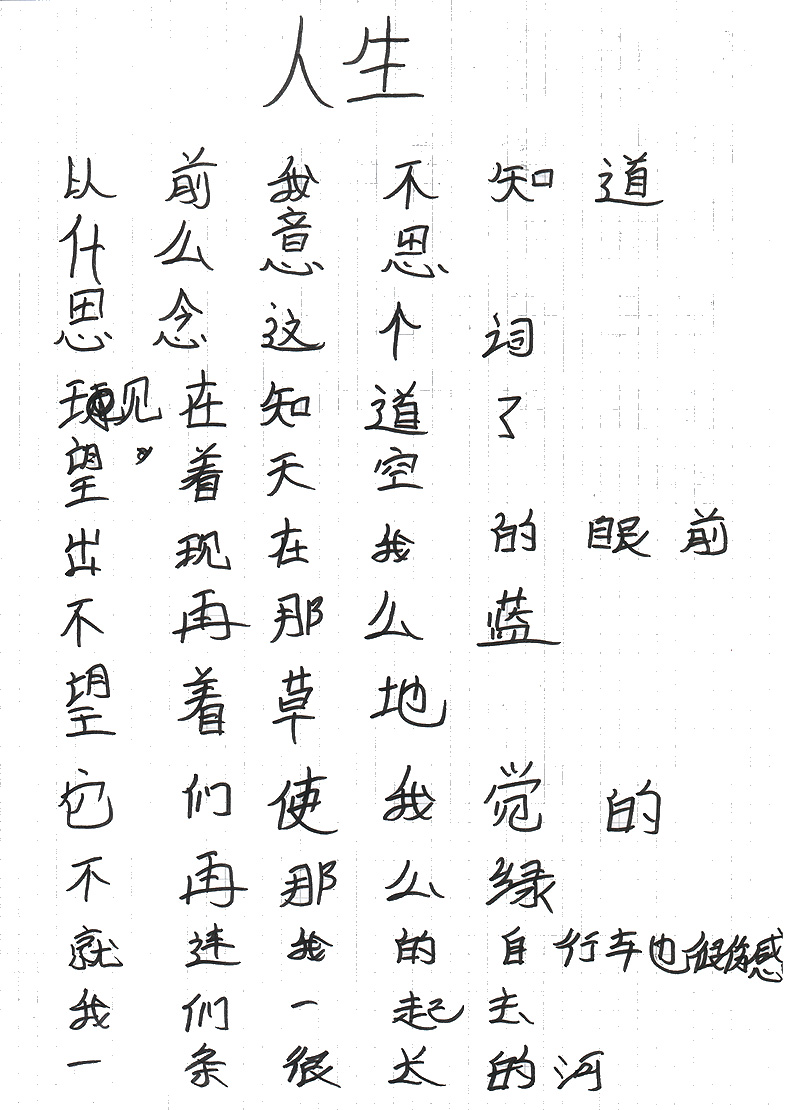 人生
以前我不知道
什么意思
思念这个词
现在知道了
望着天空
出现在我的眼前
不再那么蓝
望着草地
它们使我觉的
不再那么绿
就连我的自行车也很伤感
我们一起去
一条很长的河